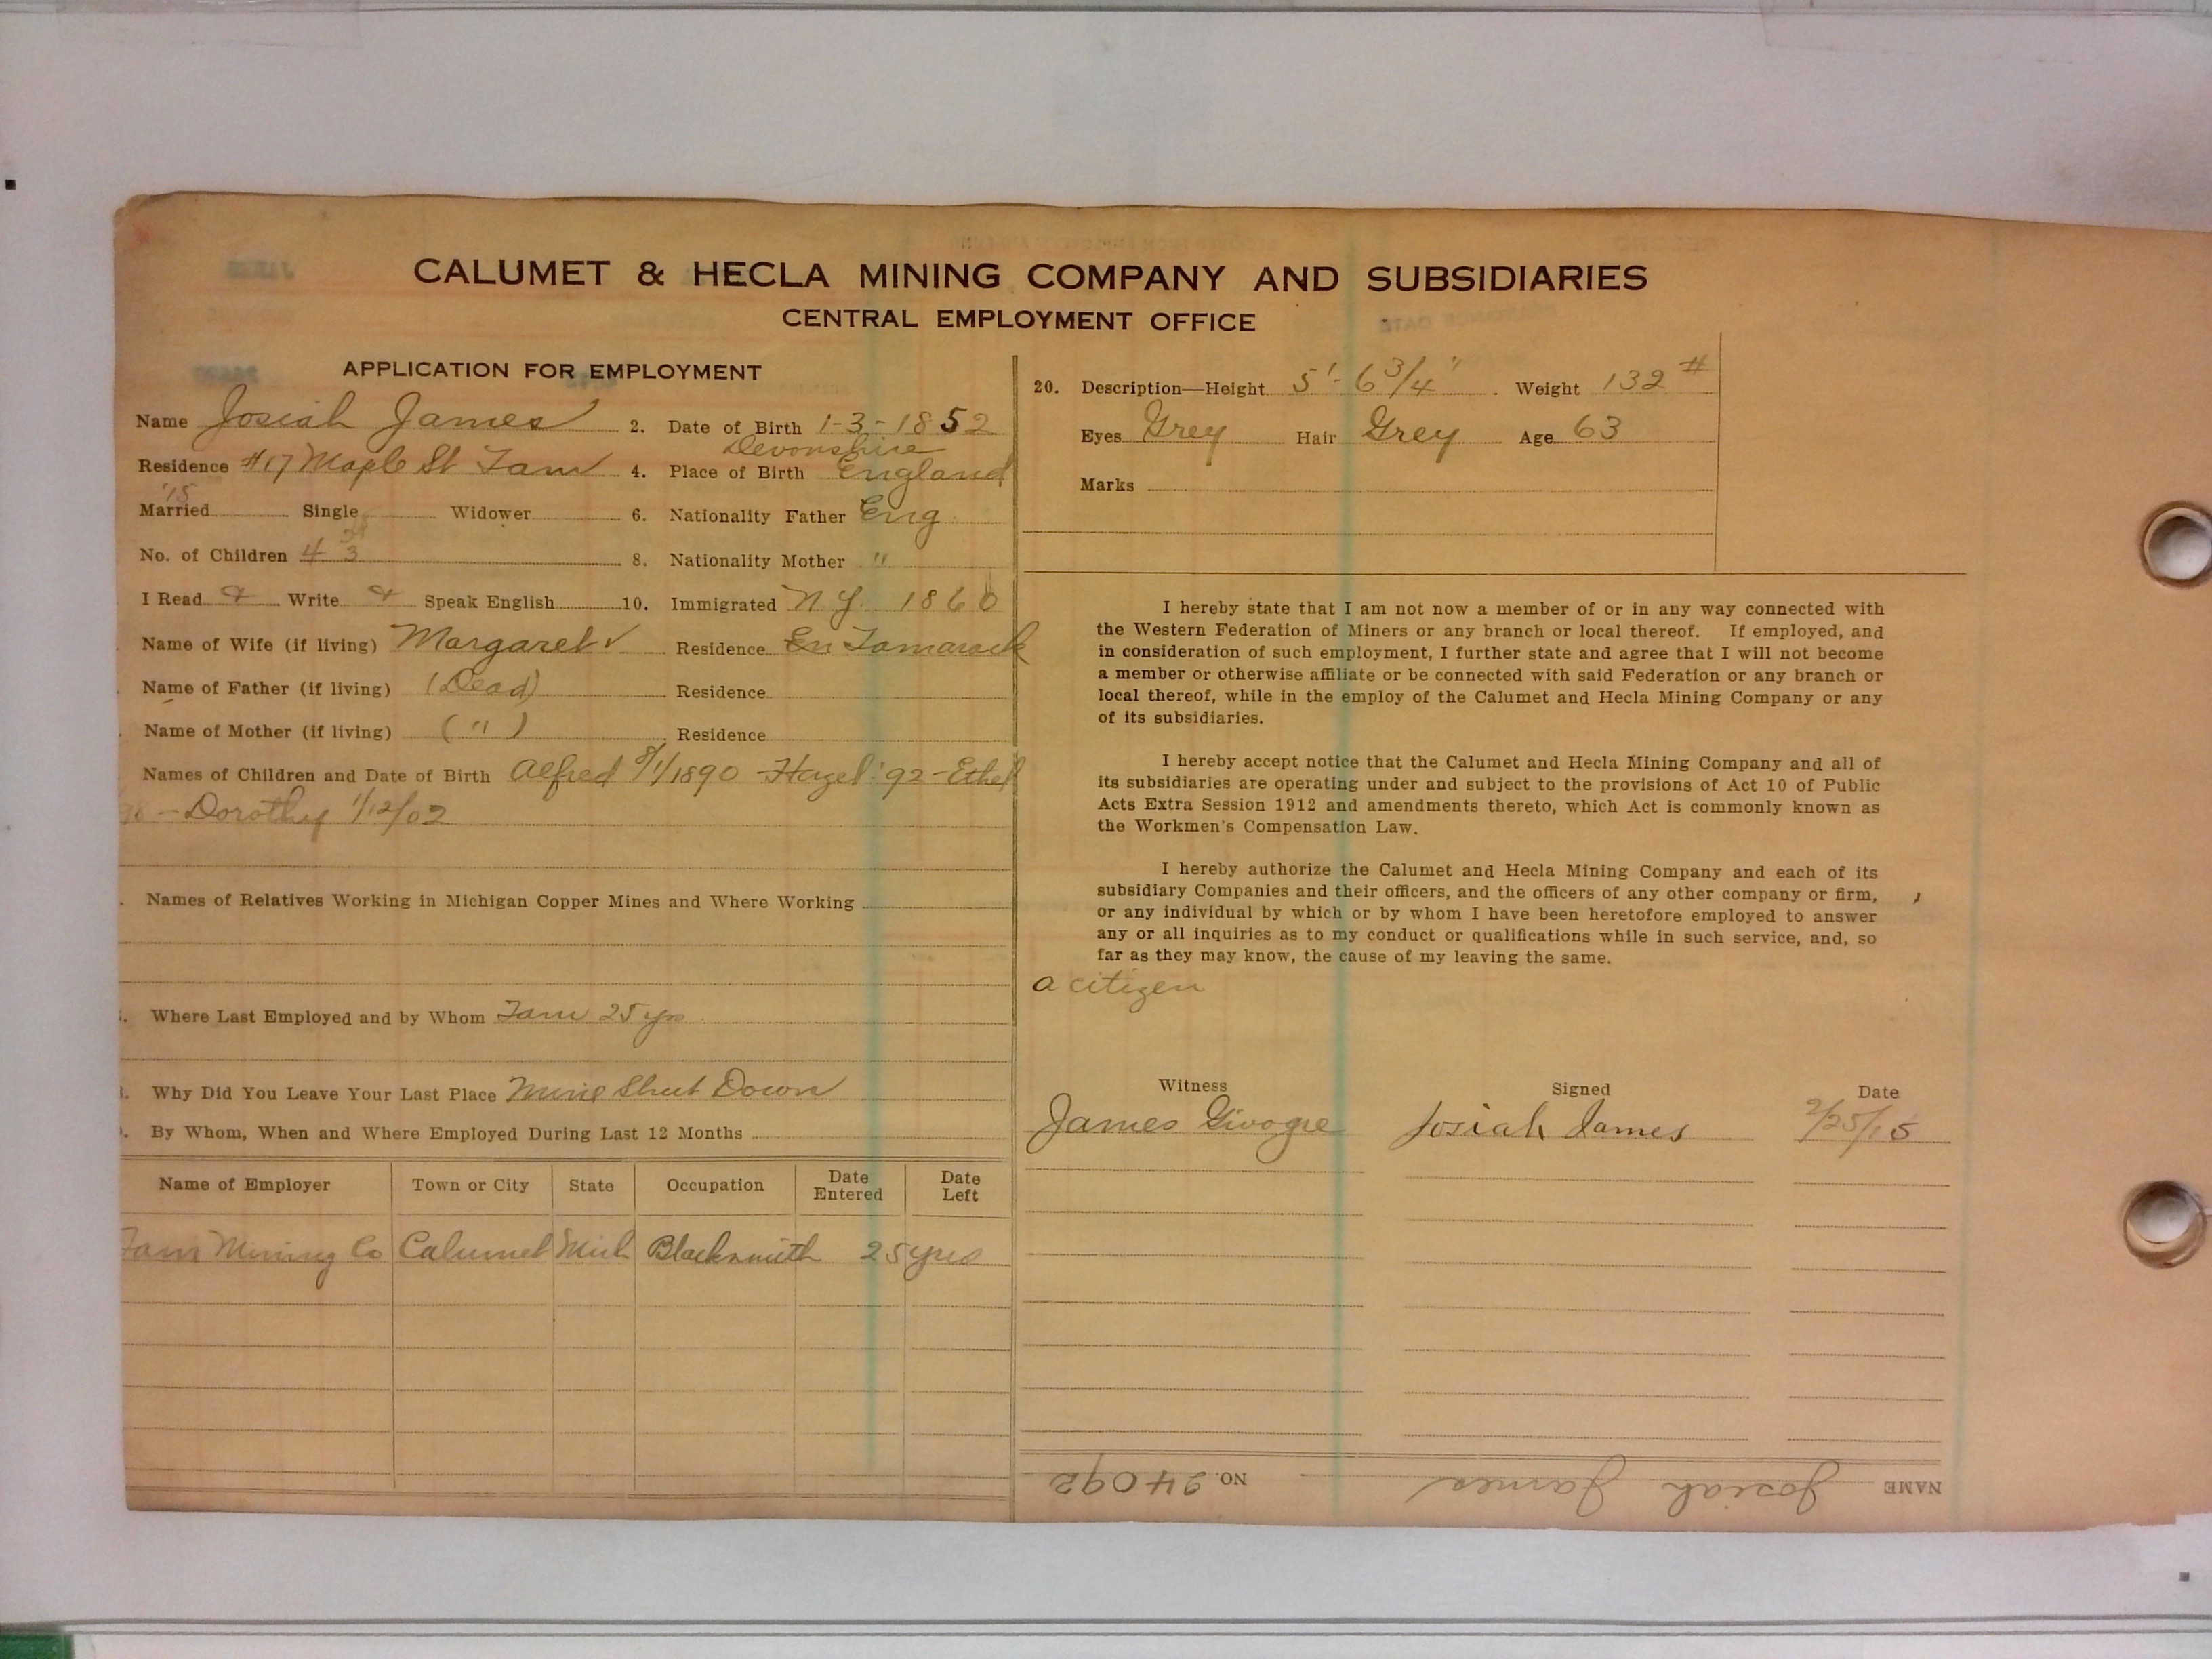 CALUMET & HECLA MINING COMPANY AND SUBSIDIARIES
CENTRAL EMPLOYMENT OFFICE
APPLICATION FOR EMPLOYMENT
Name Josiah James 2. Date of Birth 1-3-1852
Devonshire
Residence #17 Maple St Tam 4. Place of Birth England
'15
Married Single Widower 6. Nationality Father Eng
No. of Children 4 3 8. Nationality Mother "
I Read & Write & Speak English 10. Immigrated N Y. 1860
Name of Wife (if living) Margaret ✓ Residence En Tamarack
Name of Father (if living) (Dead) Residence
Name of Mother (if living) ( " ) Residence
Names of Children and Date of Birth Alfred 8/1/1890 - Hazel '92 - Ethel
98 - Dorothy 1/12/02
Names of Relatives Working in Michigan Copper Mines and Where Working
Where Last Employed and by Whom Tam 25 yrs
Why Did You Leave Your Last Place Mine Shut Down
By Whom, When and Where Employed During Last 12 Months
Name of Employer Town or City State Occupation Date Entered Date Left
Tam Mining Co Calumet Mich Blacksmith 25 yrs
20. Description—Height 5'-6 3/4" Weight 132 #
Eyes Grey Hair Grey Age 63
Marks
I hereby state that I am not now a member of or in any way connected with
the Western Federation of Miners or any branch or local thereof. If employed, and
in consideration of such employment, I further state and agree that I will not become
a member or otherwise affiliate or be connected with said Federation or any branch or
local thereof, while in the employ of the Calumet and Hecla Mining Company or any
of its subsidiaries.
I hereby accept notice that the Calumet and Hecla Mining Company and all of
its subsidiaries are operating under and subject to the provisions of Act 10 of Public
Acts Extra Session 1912 and amendments thereto, which Act is commonly known as
the Workmen's Compensation Law.
I hereby authorize the Calumet and Hecla Mining Company and each of its
subsidiary Companies and their officers, and the officers of any other company or firm,
or any individual by which or by whom I have been heretofore employed to answer
any or all inquiries as to my conduct or qualifications while in such service, and, so
far as they may know, the cause of my leaving the same.
a citizen
Witness Signed Date
James Givogre Josiah James 2/25/15
NAME Josiah James NO. 24092